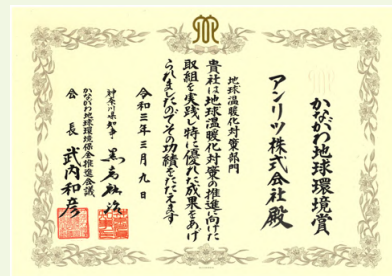 かながわ地球環境賞
アンリツ株式会社殿
地球温暖化対策部門
貴社は地球温暖化対策の推進に向けた
取組を実践し特に優れた成果をあげ
られましたのでその功績をたたえます
令和三年三月九日
神奈川県知事 黒岩祐治
かながわ地球環境保全推進会議
会長 武内和彦